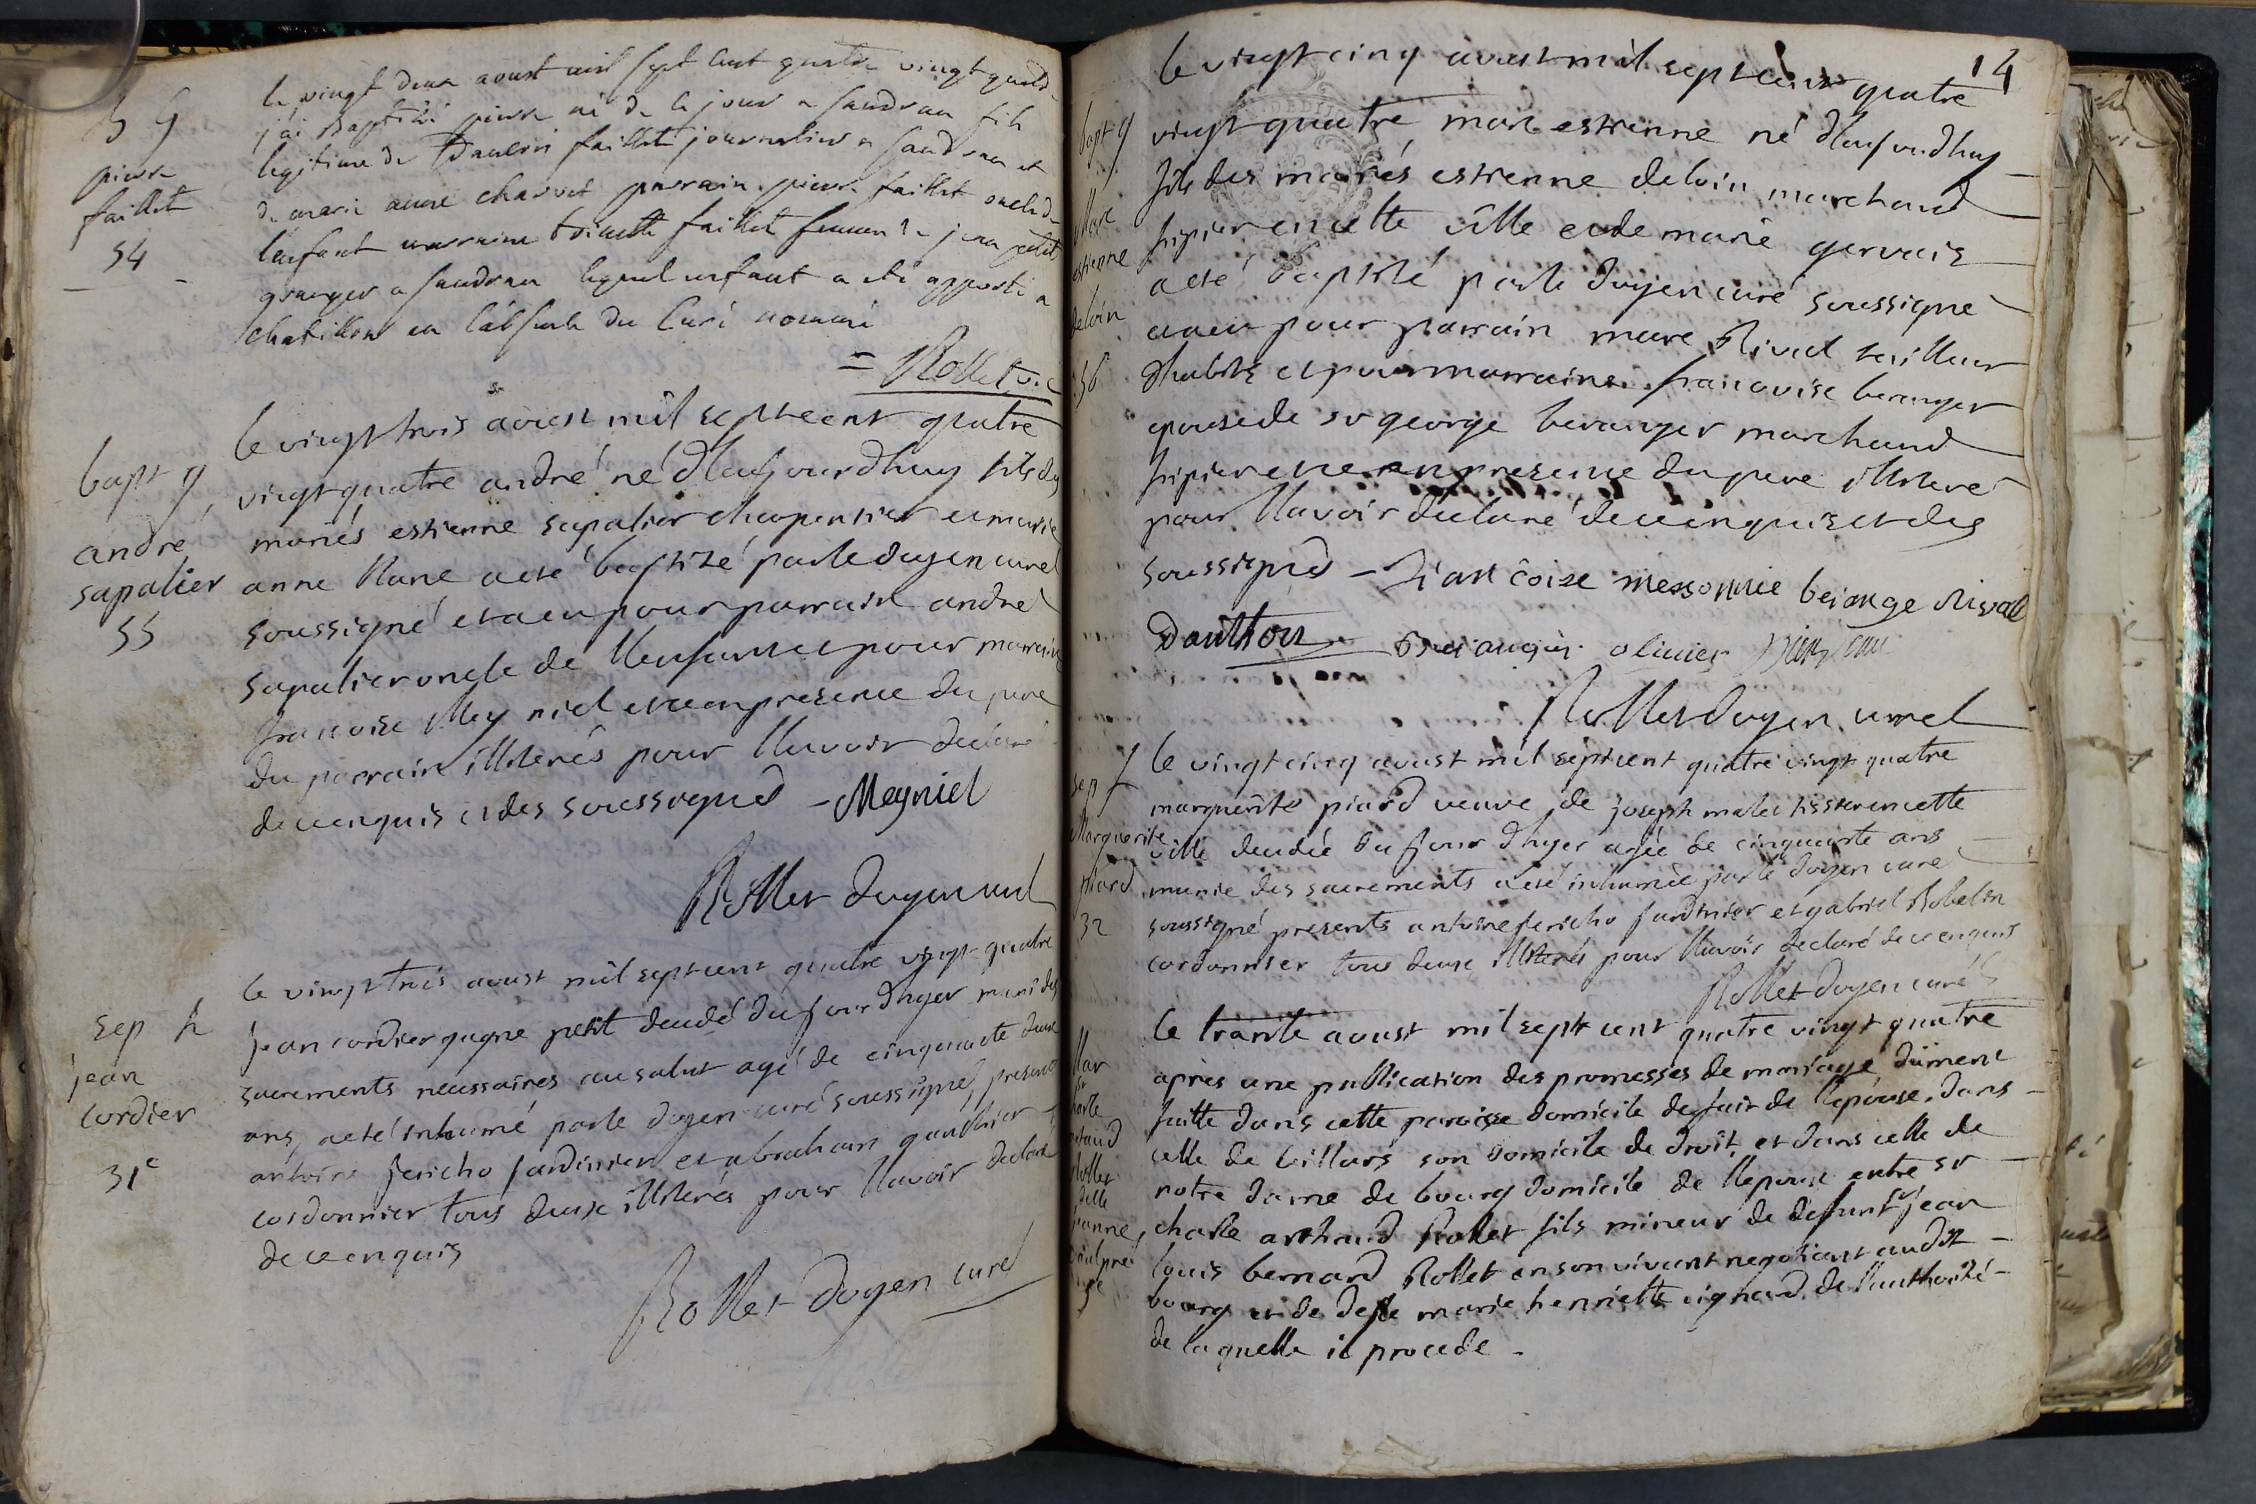 B g
pierre
faillet
54
le vingt deux aoust mil sept cent quatre vingt quatre
j'ai Baptisé pierre né de ce jour a sandran fils
legitime de faillet journalier a sandran et
de marie anne charvet parrain pierre faillet oncle de
lenfant marraine toinette faillet femme de jean petit
granger a sandran lequel enfant a eté apporté a
chatillon en l'absence du Curé nommé
= Rollet
bapt g
andré
sapalier
55
le vingt trois aoust mil sept cent quatre
vingt quatre andré né d'haujourdhuy fils des
mariés estienne sapalier charpentier et marie
anne a eté baptizé par le doyen curé
soussigné et a eu pour parrain andré
sapalier oncle de l'enfant et pour marraine
francoise Meyniel et ce en presence du pere
du parrain illiterés pour l'avoir declaré
de ce enquis et des soussignés - Meyniel
Rollet doyen curé
sep h
jean
cordier
31e
le vingt trois aoust mil sept cent quatre vingt quatre
jean cordier gagne petit decedé du jour d'hyer muni des
sacrements necessaires au salut agé de cinquante deux
ans, a eté inhumé par le doyen curé soussigné, presents
antoine jericho jardinier et abraham gauthier
cordonnier tous deux illiterés pour l'avoir declaré
de ce enquis
Rollet doyen curé
14
bapt g
Marc
estienne
deloin
56
le vingt cinq aoust mil sept cent quatre
vingt quatre marc estienne né d'haujourdhuy
fils des mariés estienne deloin marchand
fripier en cette ville et de marie gervais
a eté baptisé par le doyen curé soussigné
a eu pour parrain marc Rival tailleur
d'habits et pour marraine francoise beranger
epouse de sr george beranger marchand
fripier et ce en presence du pere illiteré
pour l'avoir declaré de ce enquis et des
soussignés - francoise messonnie berange Rival
Dauthon Berangér olivier
Rollet doyen curé
sep f
Marguerite
piard
32
le vingt cinq aoust mil sept cent quatre vingt quatre
marguerite piard veuve de joseph malet tissier en cette
ville decedée du jour d'hyer agée de cinquante ans
munie des sacrements a eté inhumée par le doyen curé
soussigné presents antoine jericho jardinier et gabriel Robelin
cordonnier tous deux illiterés pour l'avoir declaré de ce enquis
Rollet doyen curé
Mar
sr
Rollet
delle
jeanne
le trante aoust mil sept cent quatre vingt quatre
après une publication des promesses de mariage düment
faitte dans cette paroisse domicile de fait de l'epouse, dans
celle de villars son domicile de droit, et dans celle de
notre dame de bourg domicile de l'epoux entre sr
charle arthaud Rollet fils mineur de defunt sr jean
louis bernard Rollet en son vivant negotiant audit
bourg et de delle marie henriette vignard, de l'authorité
de laquelle il procede -